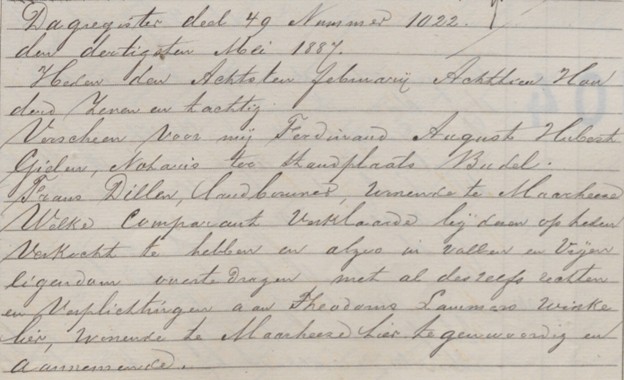 Dagregister deel 49 Nummer 1022.
den dertigsten Mei 1887.
Heden den Achtsten februarij Achttien Hon
derd Zeven en tachtig
Verscheen voor mij Ferdinand August Hubert
Gielen, Notaris ter Standplaats Budel.
Frans Dillen, landbouwer, wonende te Maarheeze
Welke Comparant Verklaarde bij dezen op heden
Verkocht te hebben en alzoo in vollen en Vrijen
eigendom overte dragen met al deszelfs rechten
en Verplichtingen aan Theodorus Lammers Winke
lier, wonende te Maarheeze hier tegenwoordig en
aannemende.